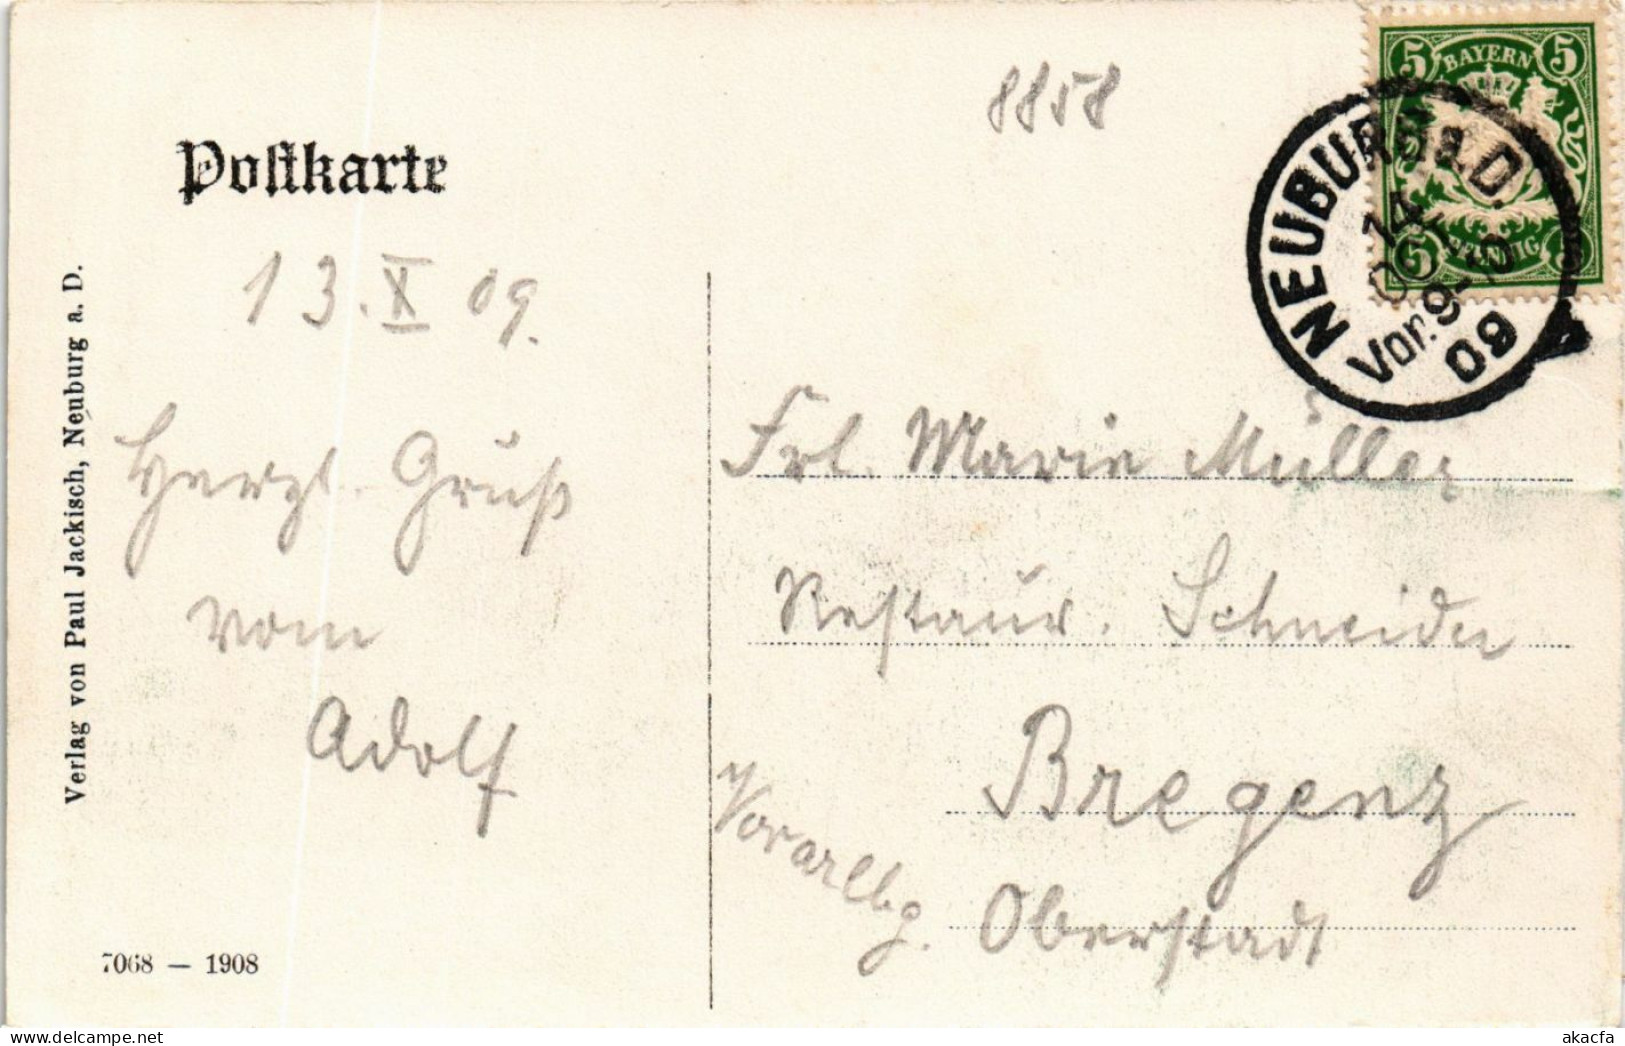 Postkarte
8858
BAYERN
5 5
5 5
PFENNIG
NEUBURG a.D.
14
Vor. 9-10
09
13. X 09.
Herzl. Gruß
vom
Adolf
Frl. Marie Müller
Restaur. Schneider
Bregenz
Oberstadt
Vorarlbg.
Verlag von Paul Jackisch, Neuburg a. D.
7068 — 1908
akacfa